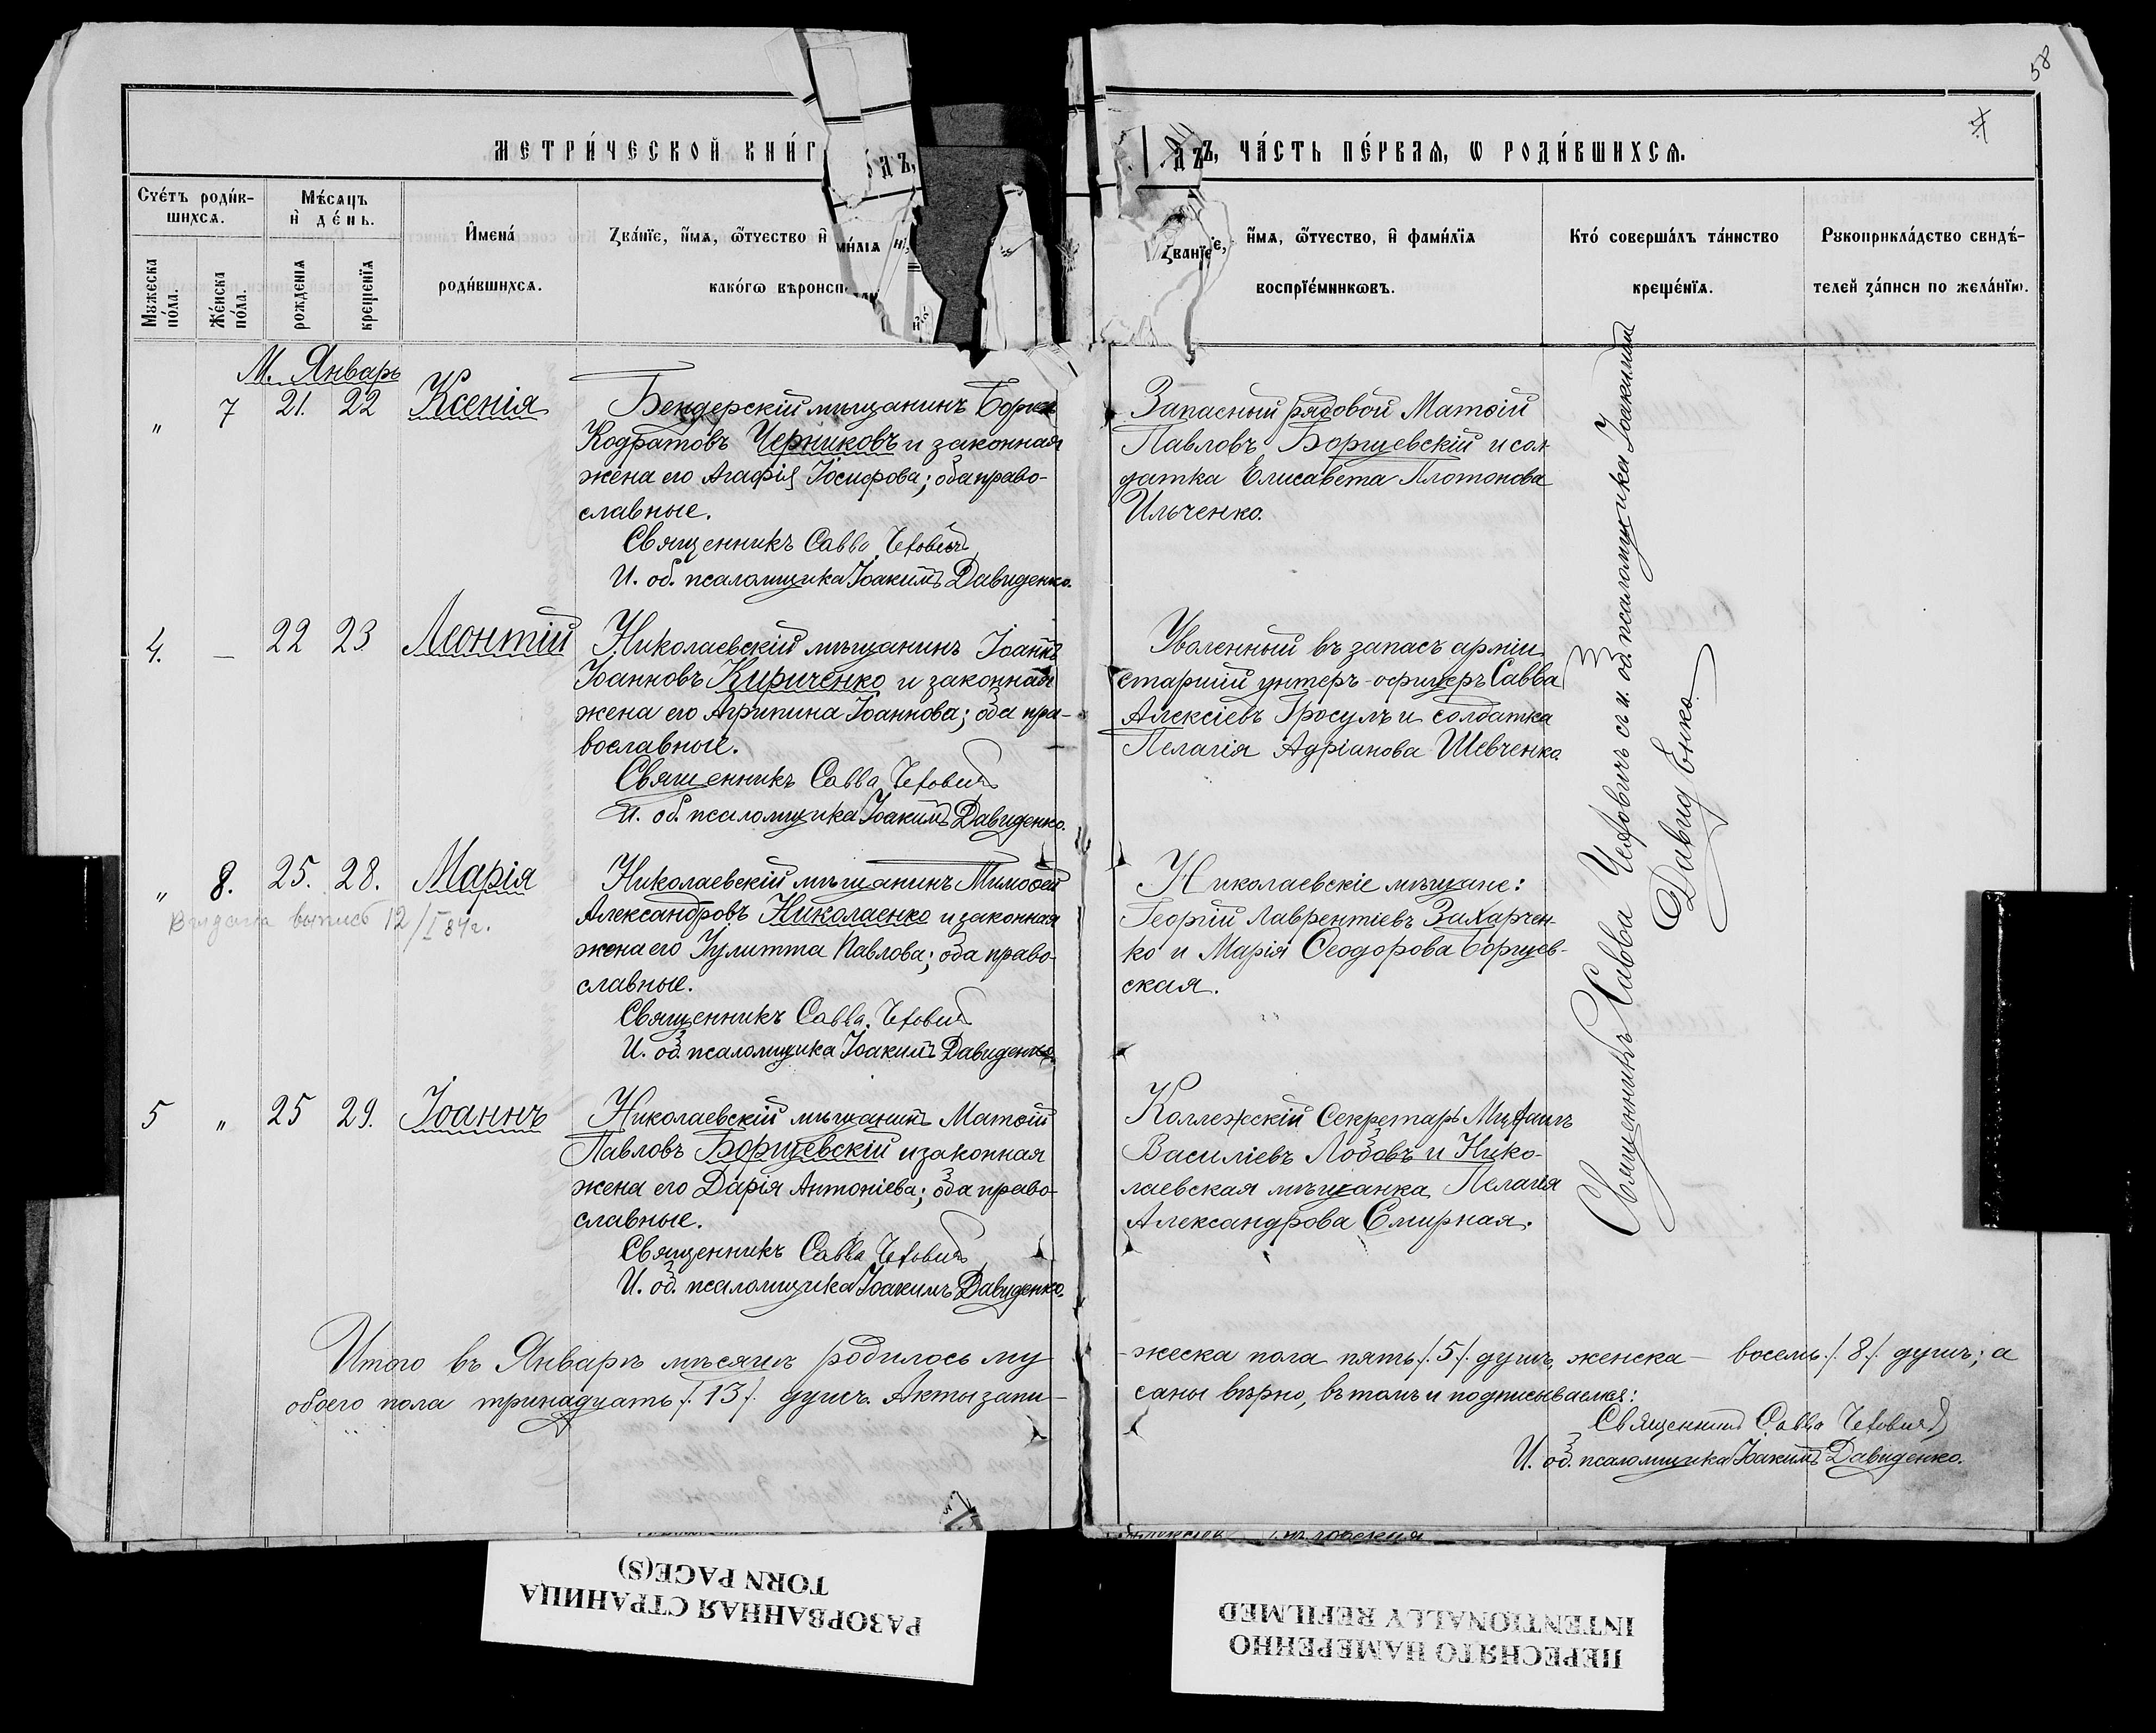 58
МЕТРИ́ЧЕСКОЙ КНИ́Г
ДЪ,
ДЪ, ЧА́СТЬ ПЕ́РВАѦ, Ѡ РОДИ́ВШИХСѦ.
Счéтъ роди́в-
шихсѧ.
Мѣ́сѧцъ
и҆ де́нь.
Мꙋжеска по́ла.
Же́нска по́ла.
рожденїѧ
крещенїѧ
И҆мена́
роди́вшихсѧ.
Зва́нїе, и҆́мѧ, ѻ҆́тчество и҆
ми́лїѧ
како́гѡ вѣроисп
Зва́нїе, и҆́мѧ, ѻ҆́тчество, и҆ фами́лїѧ
воспрїе́мникѡвъ.
Кто̀ соверша́лъ та́инство
креще́нїѧ.
Рꙋкоприкла́дство свидѣ́-
телей за́писи по жела́нїю.
М. Январь
" 7 21. 22 Ксенія
Бендерскій мѣщанинъ Борис
Кодратовъ Черниковъ и законная
жена его Агафія Іосифова; оба право-
славные.
Священникъ Савва Чехович
И. об. псаломщика Іоакимъ Давиденко.
Запасный рядовой Матѳій
Павловъ Борщевскій и сол
датка Елисавета Плотонова
Ильченко.
4. — 22 23 Леонтій
Николаевскій мѣщанинъ Іоаннъ
Іоанновъ Кириченко и законная
жена его Агрипина Іоаннова; оба пра-
вославные.
Священникъ Савва Чехович
И. об. псаломщика Іоакимъ Давиденко.
Уволенный въ запасъ арміи
старшій унтеръ-офицеръ Савва
Алексіевъ Гросулъ и солдатка
Пелагія Адріанова Шевченко.
" 8. 25. 28. Марія
Выдана выпись 12/I 84 г.
Николаевскій мѣщанинъ Тимоѳей
Александровъ Николаенко и законная
жена его Іулитта Павлова; оба право-
славные.
Священникъ Савва Чехович
И. об. псаломщика Іоакимъ Давиденко.
Николаевскіе мѣщане:
Георгій Лаврентіевъ Захарчен-
ко и Марія Ѳеодорова Борщев-
ская.
5 " 25 29. Іоаннъ
Николаевскій мѣщанинъ Матѳій
Павловъ Борщевскій и законная
жена его Дарія Антоніева; оба право-
славные.
Священникъ Савва Чехович
И. об. псаломщика Іоакимъ Давиденко.
Коллежскій Секретарь Михаилъ
Василіевъ Лобовъ и Нико-
лаевская мѣщанка Пелагія
Александрова Смирная.
Священникъ Савва Чеховичъ съ и. об. псаломщика Іоакимом
Давиденко.
Итого въ Январѣ мѣсяцѣ родилось му
жеска пола пять /5/ душъ, женска — восемь /8/ душъ; а
обоего пола тринадцать /13/ душъ. Акты запи-
саны вѣрно, въ томъ и подписываемся:
Священник Савва Чехович
И. об. псаломщика Іоакимъ Давиденко.
РАЗОРВАННАЯ СТРАНИЦА
TORN PAGE(S)
ПЕРЕСНЯТО НАМЕРЕННО
INTENTIONALLY REFILMED